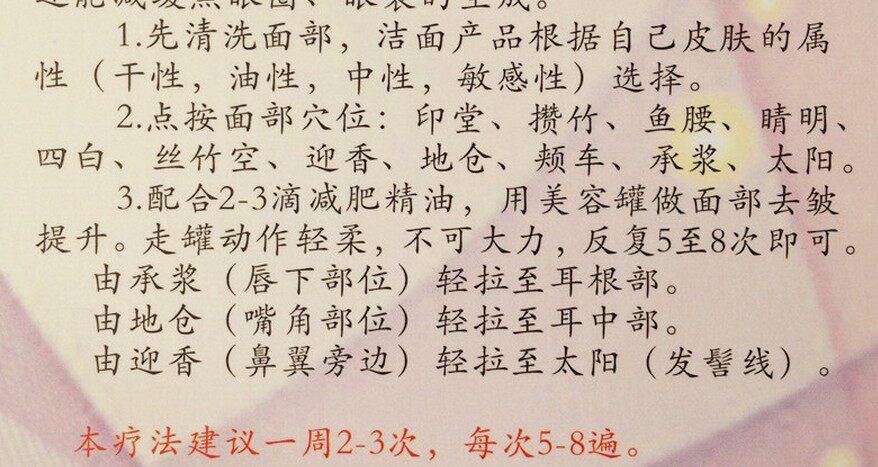 还能减缓黑眼圈、眼袋的生成。
1.先清洗面部，洁面产品根据自己皮肤的属
性（干性，油性，中性，敏感性）选择。
2.点按面部穴位：印堂、攒竹、鱼腰、睛明、
四白、丝竹空、迎香、地仓、颊车、承浆、太阳。
3.配合2-3滴减肥精油，用美容罐做面部去皱
提升。走罐动作轻柔，不可大力，反复5至8次即可。
由承浆（唇下部位）轻拉至耳根部。
由地仓（嘴角部位）轻拉至耳中部。
由迎香（鼻翼旁边）轻拉至太阳（发髻线）。
本疗法建议一周2-3次，每次5-8遍。